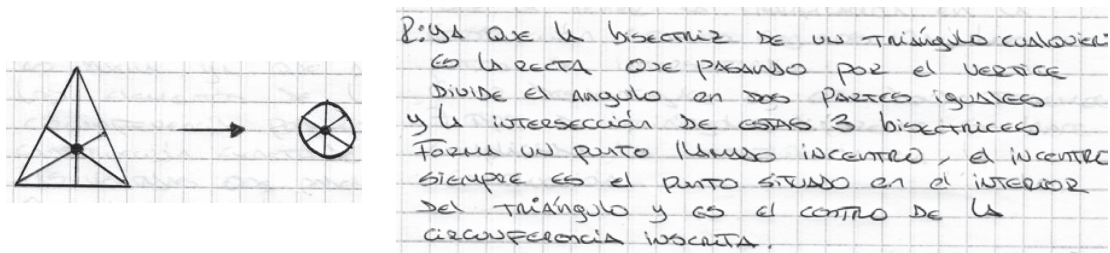 R: YA QUE LA BISECTRIZ DE UN TRIÁNGULO CUALQUIER
ES LA RECTA QUE PASANDO POR EL VERTICE
DIVIDE EL ANGULO EN DOS PARTES IGUALES
Y LA INTERSECCIÓN DE ESTAS 3 BISECTRICES
FORMA UN PUNTO LLAMADO INCENTRO, EL INCENTRO
SIEMPRE ES EL PUNTO SITUADO EN EL INTERIOR
DEL TRIÁNGULO Y ES EL CENTRO DE LA
CIRCUNFERENCIA INSCRITA.